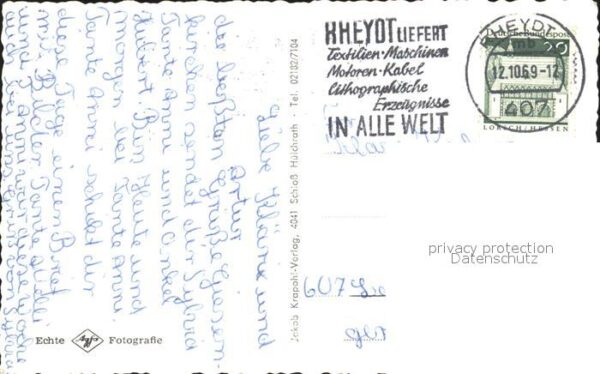 RHEYDT LIEFERT
Textilien·Maschinen
Motoren·Kabel
Lithographische
Erzeugnisse
IN ALLE WELT
RHEYDT 1
mb
12.10.69-12
407
Deutsche Bundespost
20
LORSCH/HESSEN
privacy protection
Datenschutz
607
Liebe Kläre und
Artur
die besten Grüße
kirchen sendet dir Sylvia
Tante Anni und Onkel
Hubert Bin Heute und
morgen bei Tante Anni
Tante Anni schickt dir
diese Tage einen Brief
mit Bilder Tante
und
Sylvia
Jakob Krapohl-Verlag, 4041 Schloß Hülchrath · Tel. 02182/7104
Echte Agfa Fotografie